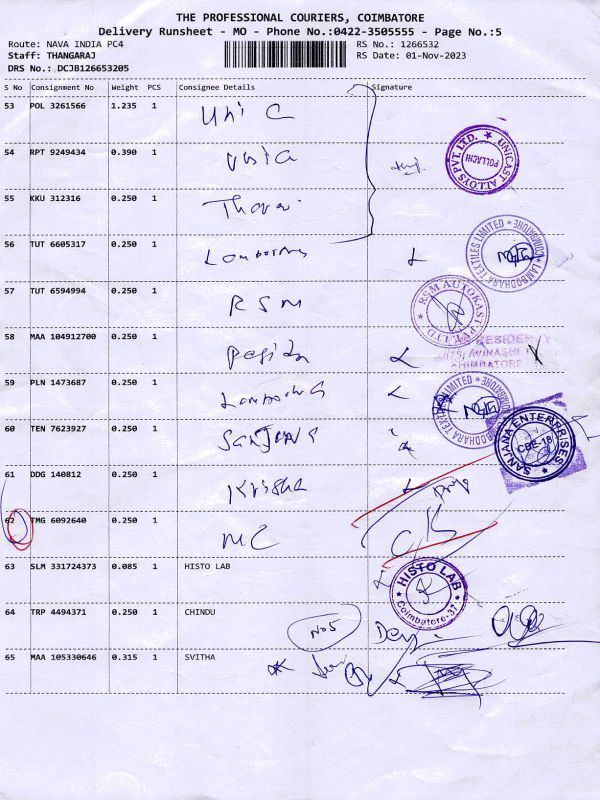 THE PROFESSIONAL COURIERS, COIMBATORE
Delivery Runsheet - MO - Phone No.:0422-3505555 - Page No.:5
Route: NAVA INDIA PC4 RS No.: 1266532
Staff: THANGARAJ RS Date: 01-Nov-2023
DRS No.: DCJB126653205
S No Consignment No Weight PCS Consignee Details Signature
53 POL 3261566 1.235 1 Uni C
54 RPT 9249434 0.390 1
UNICAST ALLOYS PVT. LTD. POLLACHI
55 KKU 312316 0.250 1
56 TUT 6605317 0.250 1
LAMBODHARA TEXTILES LIMITED COIMBATORE
57 TUT 6594994 0.250 1 RSM
RSM AUTOKAST PVT. LTD.
58 MAA 104912700 0.250 1
RESIDENCY
AVINASHI
COIMBATORE
59 PLN 1473687 0.250 1
LAMBODHARA TEXTILES LIMITED COIMBATORE
60 TEN 7623927 0.250 1 Sanjana
SANJANA ENTERPRISES CBE-18
61 DDG 140812 0.250 1 Krisha
62 TMG 6092640 0.250 1 MC
63 SLM 331724373 0.085 1 HISTO LAB
HISTO LAB Coimbatore-37
64 TRP 4494371 0.250 1 CHINDU
No5
65 MAA 105330646 0.315 1 SVITHA